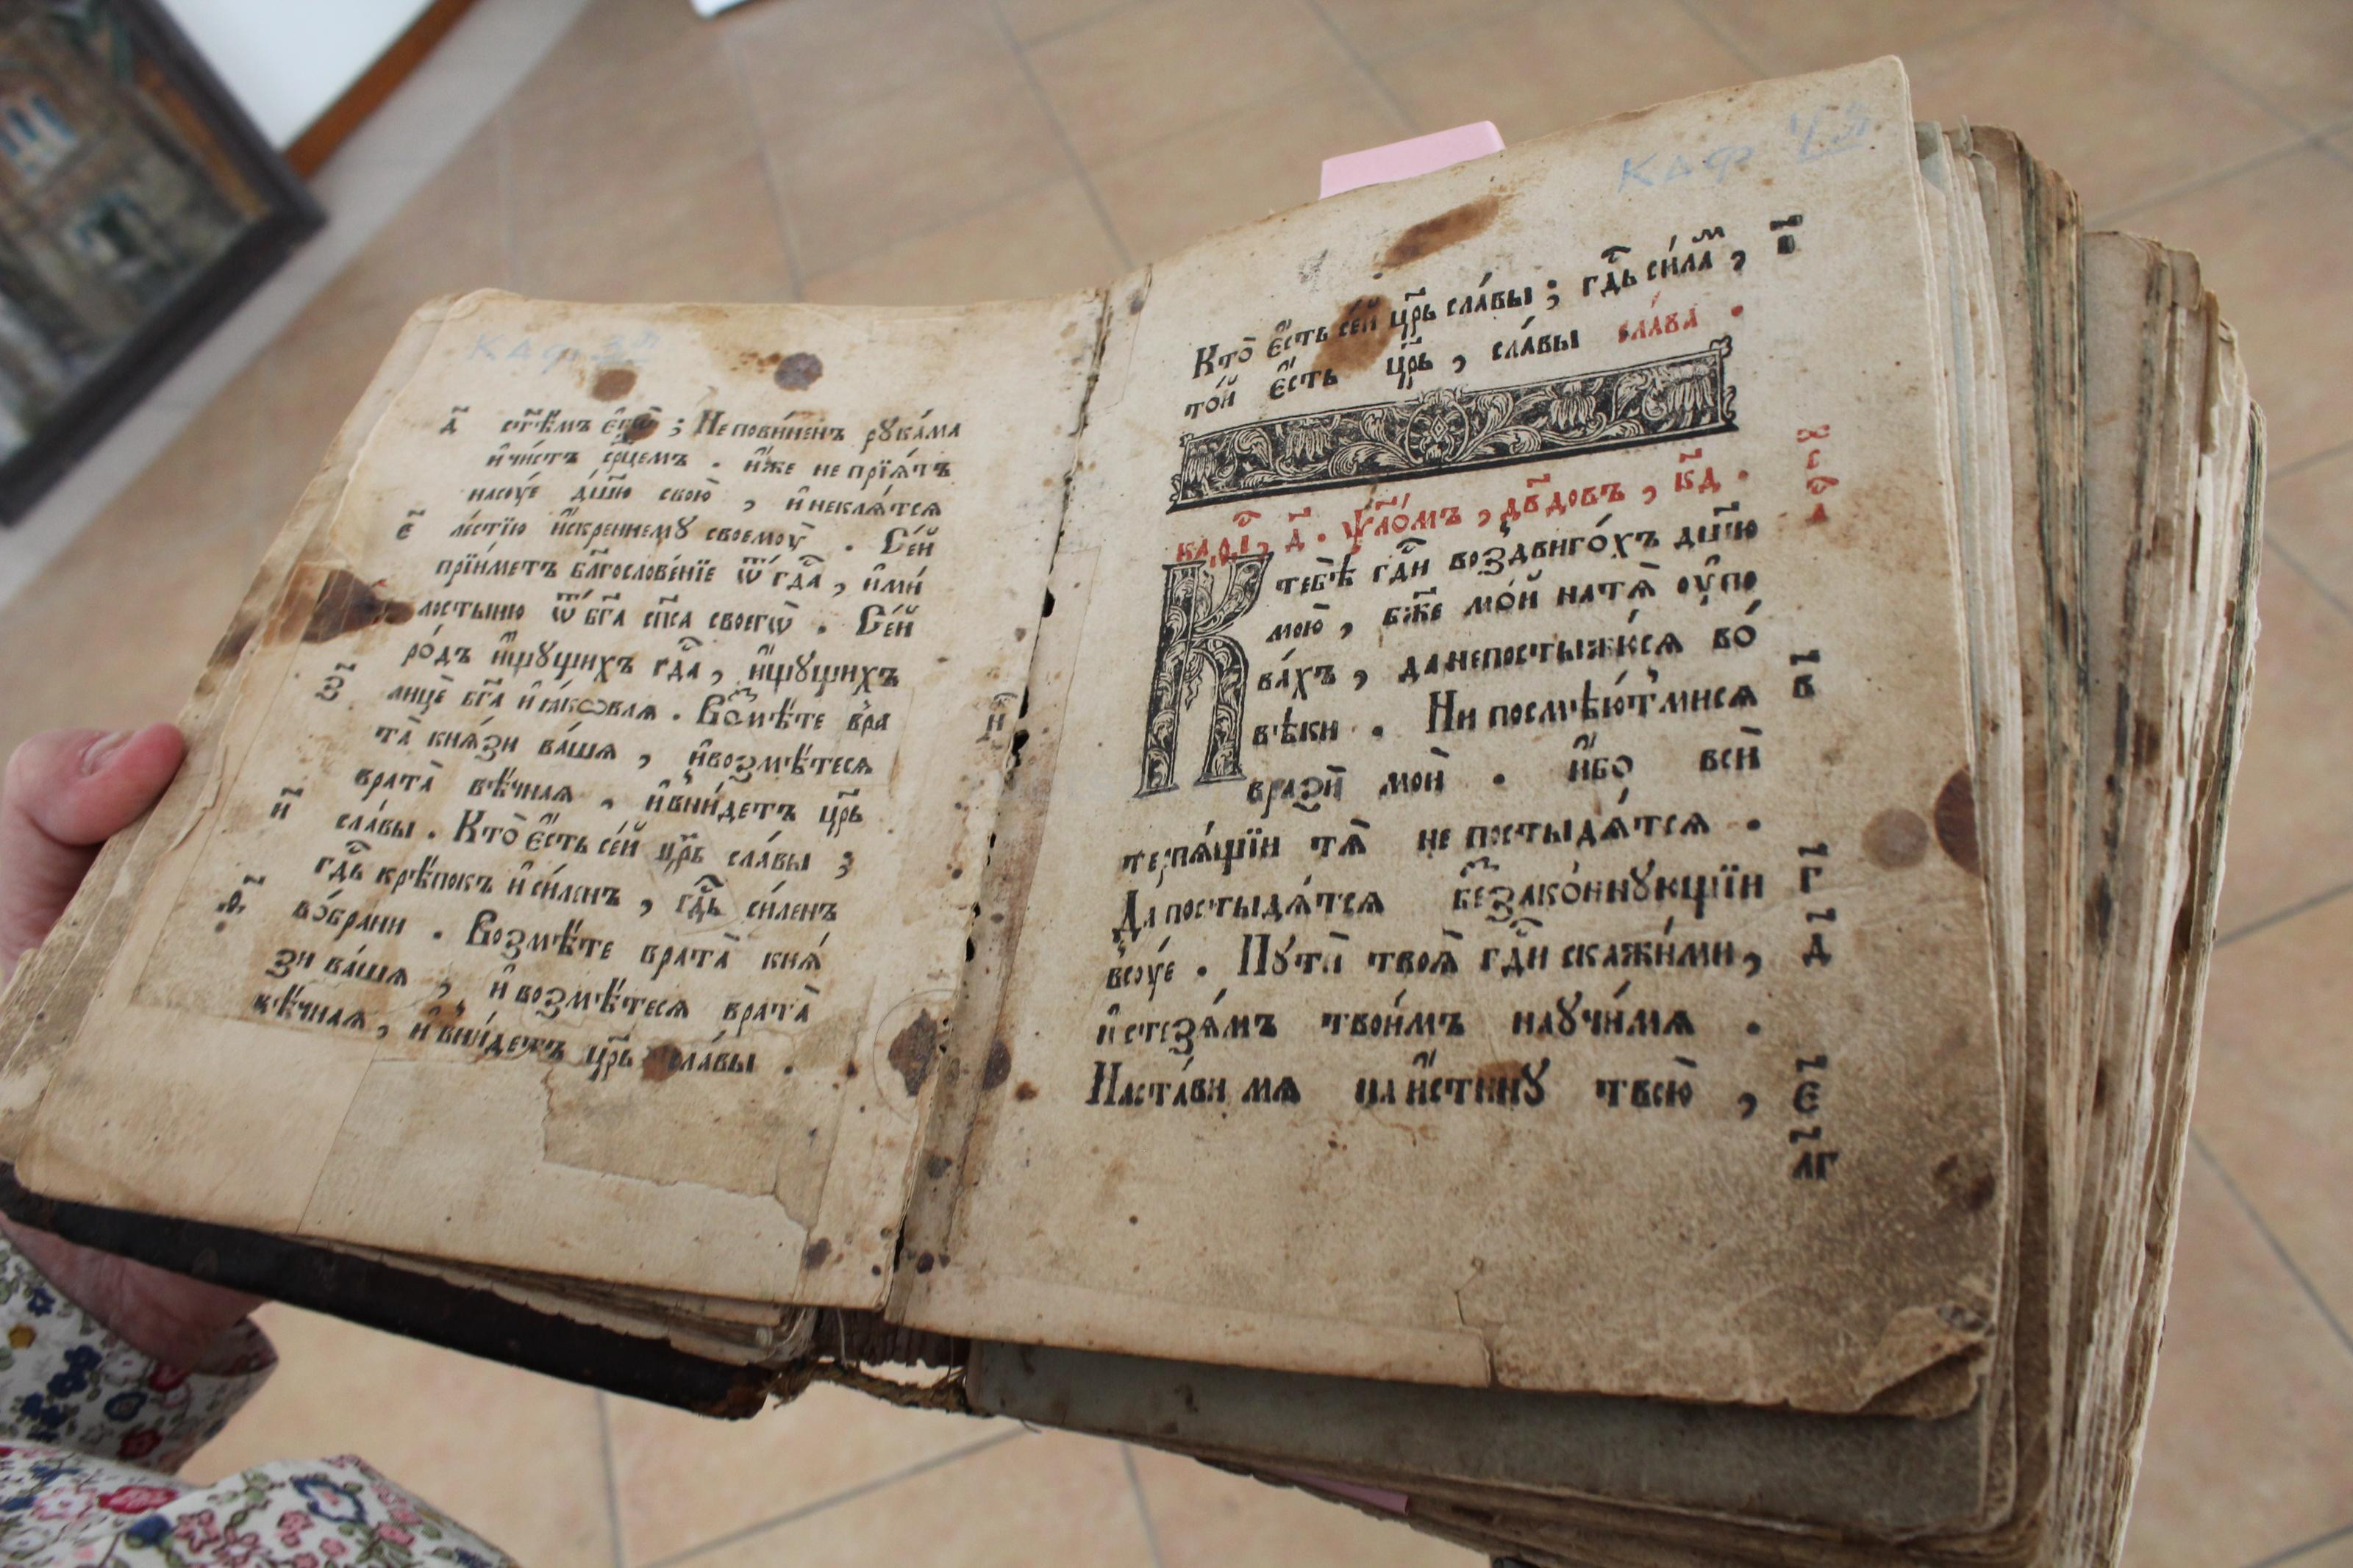 КАФ 3я
д҃ ст҃ѣмъ є҆гѡ̀ ; Непови́ненъ рꙋка́ма
и҆чи́стъ ср҃цемъ . и҆́же не прїѧ́тъ
насꙋ́е дш҃ꙋ свою̀ , и҆неклѧ́тсѧ
є҃ ле́стїю и҆́скреннемꙋ своемꙋ̀ . Се́й
прїи́метъ бл҃гослове́нїе ѿ гдⷭ҇а , и҆ми́
лостыню ѿ бг҃а сп҃са своегѡ̀ . Се́й
ро́дъ и҆́щꙋщихъ гдⷭ҇а , и҆́щꙋщихъ
з҃ лицѐ бг҃а и҆ꙗ҆́ковлѧ . Возмѣ́те вра
та̀ кнѧ́зи ва́шѧ , и҆возмѣ́тесѧ
врата̀ вѣ́чнаѧ , и҆вни́детъ цр҃ь
и҃ сла́вы . Кто̀ є҆́сть се́й цр҃ь сла́вы ;
гдⷭ҇ь крѣ́покъ и҆си́ленъ , гдⷭ҇ь си́ленъ
ѳ҃ во́брани . Возмѣ́те врата̀ кнѧ́
зи ва́шѧ , и҆возмѣ́тесѧ врата̀
вѣ́чнаѧ , и҆вни́детъ цр҃ь сла́вы .
КАФ
Кто̀ є҆́сть се́й цр҃ь сла́вы ; гдⷭ҇ь си́лам , і҃
то́й є҆́сть цр҃ь , сла́вы сла́ва .
каѳі́, д҃ . ѱл҃о́мъ , дв҃довъ , к҃д .
Ктебѣ̀ гдⷭ҇и воздвиго́хъ дш҃ꙋ
мою̀ , бж҃е мо́й натѧ̀ ᲂу҆по
ва́хъ , данепостыжꙋ́сѧ во́
вѣки . Ни посмѣю́тмисѧ в҃
вразѝ моѝ . и҆́бо всѝ
терпѧ́щїи тѧ̀ не постыдѧ́тсѧ .
Да постыдѧ́тсѧ беззако́ннꙋющїи г҃
всꙋ́е . Пꙋтѝ твоѧ̀ гдⷭ҇и скажи́ми , д҃
и҆стезѧ́мъ твои́мъ наꙋчи́мѧ .
Наста́ви мѧ на и҆́стинꙋ твою̀ , є҃
лг҃